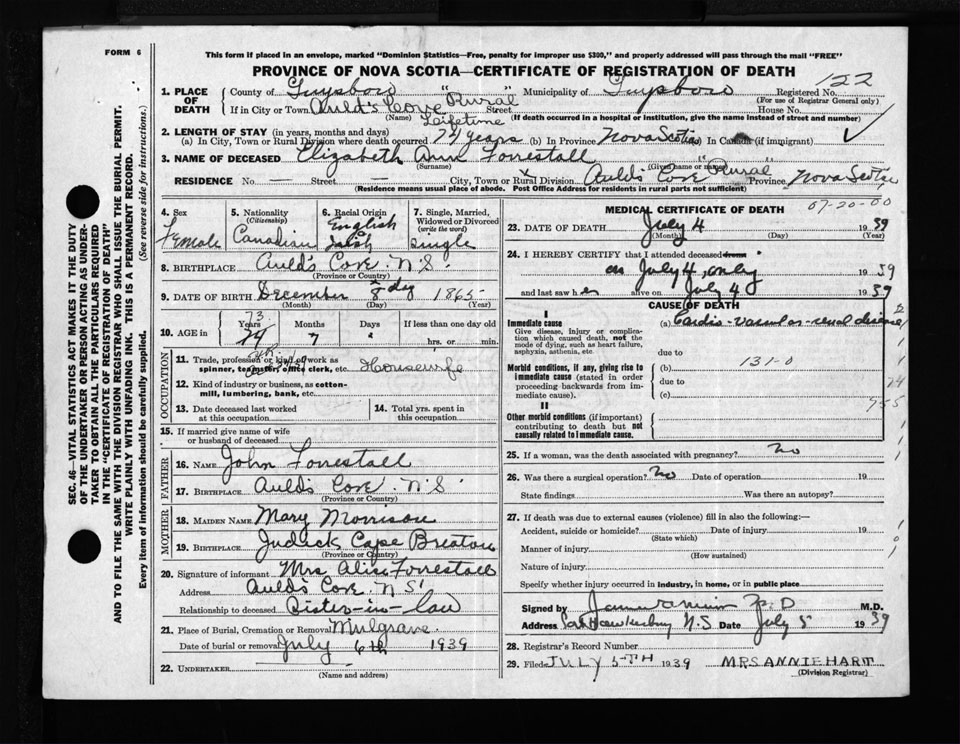 FORM 6
This form if placed in an envelope, marked "Dominion Statistics—Free, penalty for improper use $300," and properly addressed will pass through the mail "FREE"
PROVINCE OF NOVA SCOTIA—CERTIFICATE OF REGISTRATION OF DEATH
122
1. PLACE OF DEATH
County of Guysboro "Rural" Municipality of Guysboro Registered No.
(For use of Registrar General only)
If in City or Town Auld's Cove Street House No.
(Name) (If death occurred in a hospital or institution, give the name instead of street and number)
Lifetime
2. LENGTH OF STAY (in years, months and days)
(a) In City, Town or Rural Division where death occurred 74 years (b) In Province Nova Scotia (c) In Canada (if immigrant)
3. NAME OF DECEASED Elizabeth Ann Forrestall
(Surname) (Given name or names)
RESIDENCE No. — Street — City, Town or Rural Division Auld's Cove "Rural" Province Nova Scotia
(Residence means usual place of abode. Post Office Address for residents in rural parts not sufficient)
4. Sex Female
5. Nationality (Citizenship) Canadian
6. Racial Origin English Irish
7. Single, Married, Widowed or Divorced (write the word) single
8. BIRTHPLACE Auld's Cove N.S.
(Province or Country)
9. DATE OF BIRTH December 8 day 1865
(Month) (Day) (Year)
10. AGE in 73 Years 74 Months 7 Days If less than one day old
hrs. or min.
OCCUPATION
11. Trade, profession or kind of work as spinner, teamster, office clerk, etc. Housewife
12. Kind of industry or business, as cotton-mill, lumbering, bank, etc.
13. Date deceased last worked at this occupation
14. Total yrs. spent in this occupation
15. If married give name of wife or husband of deceased
FATHER
16. NAME John Forrestall
17. BIRTHPLACE Auld's Cove N.S.
(Province or Country)
MOTHER
18. MAIDEN NAME Mary Morrison
19. BIRTHPLACE Judick Cape Breton
(Province or Country)
20. Signature of informant Mrs Alice Forrestall
Address Auld's Cove N.S.
Relationship to deceased Sister-in-law
21. Place of Burial, Cremation or Removal Mulgrave
Date of burial or removal July 6th 1939
22. UNDERTAKER
(Name and address)
MEDICAL CERTIFICATE OF DEATH
07-20-00
23. DATE OF DEATH July 4 1939
(Month) (Day) (Year)
24. I HEREBY CERTIFY that I attended deceased from
on July 4, only 1939
and last saw her alive on July 4 1939
CAUSE OF DEATH
I
Immediate cause (a) Cardio-vascular-renal disease
Give disease, injury or complication which caused death, not the mode of dying, such as heart failure, asphyxia, asthenia, etc.
due to
Morbid conditions, if any, giving rise to immediate cause (stated in order proceeding backwards from immediate cause).
(b) 131-0
due to
(c)
74
II
Other morbid conditions (if important) contributing to death but not causally related to immediate cause.
25. If a woman, was the death associated with pregnancy? no
26. Was there a surgical operation? no Date of operation 19
State findings Was there an autopsy?
27. If death was due to external causes (violence) fill in also the following:—
Accident, suicide or homicide? Date of injury 19
(State which)
Manner of injury
(How sustained)
Nature of injury
Specify whether injury occurred in industry, in home, or in public place
Signed by M.D.
Address Port Hawkesbury N.S. Date July 5 1939
28. Registrar's Record Number
29. Filed JULY 5TH 1939 MRS ANNIE HART
(Division Registrar)
SEC. 46—VITAL STATISTICS ACT MAKES IT THE DUTY
OF THE UNDERTAKER OR PERSON ACTING AS UNDERTAKER
TO OBTAIN ALL THE PARTICULARS REQUIRED
IN THE "CERTIFICATE OF REGISTRATION OF DEATH"
AND TO FILE THE SAME WITH THE DIVISION REGISTRAR WHO SHALL ISSUE THE BURIAL PERMIT.
WRITE PLAINLY WITH UNFADING INK. THIS IS A PERMANENT RECORD.
Every item of information should be carefully supplied. (See reverse side for instructions.)